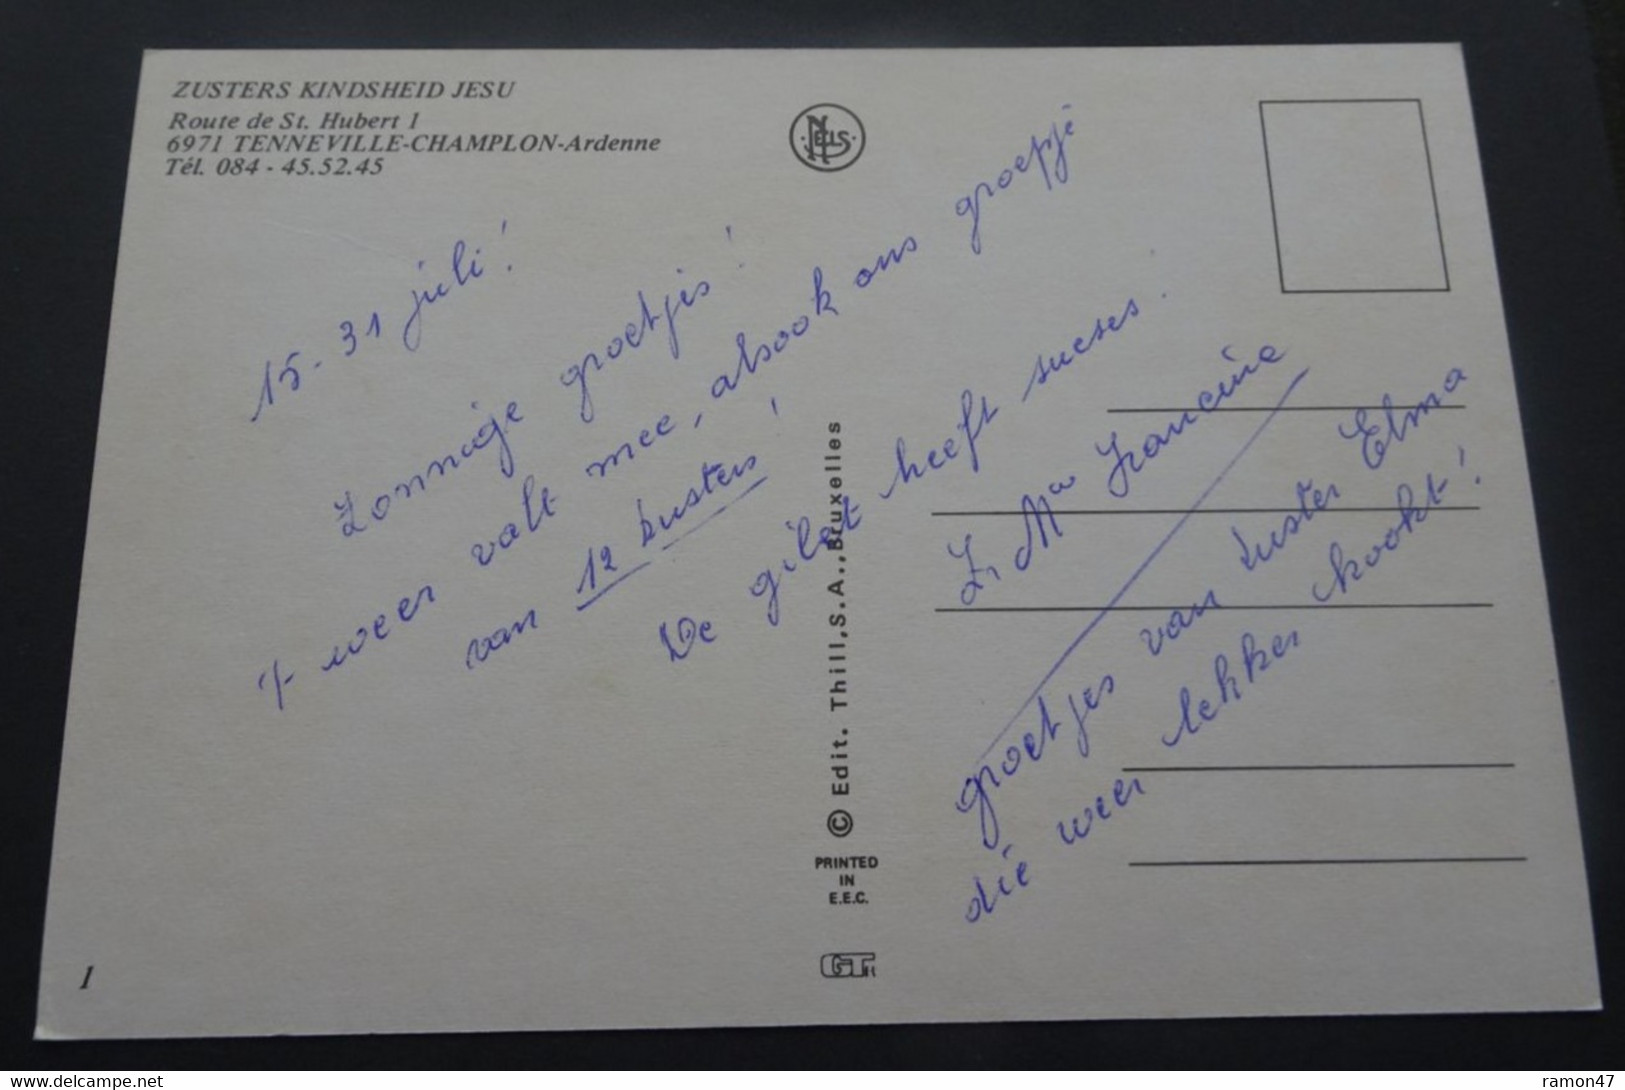 ZUSTERS KINDSHEID JESU
Route de St. Hubert 1
6971 TENNEVILLE-CHAMPLON-Ardenne
Tél. 084 - 45.52.45
NELS
15-31 juli!
Zonnige groetjes!
't weer valt mee, alsook ons groepje
van 12 zusters!
De gilet heeft sucses.
Z. Ma Francine
groetjes van Zuster Elma
die weer lekker kookt!
© Edit. Thill, S.A., Bruxelles
PRINTED
IN
E.E.C.
1
ramon47